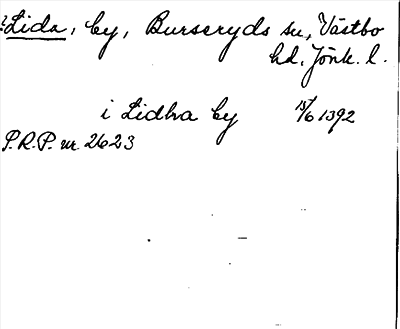 ?Lida, by, Burseryds sn, Västbo
hd, Jönk. l.
i Lidha by 15/6 1392
P.R.P. nr 2623